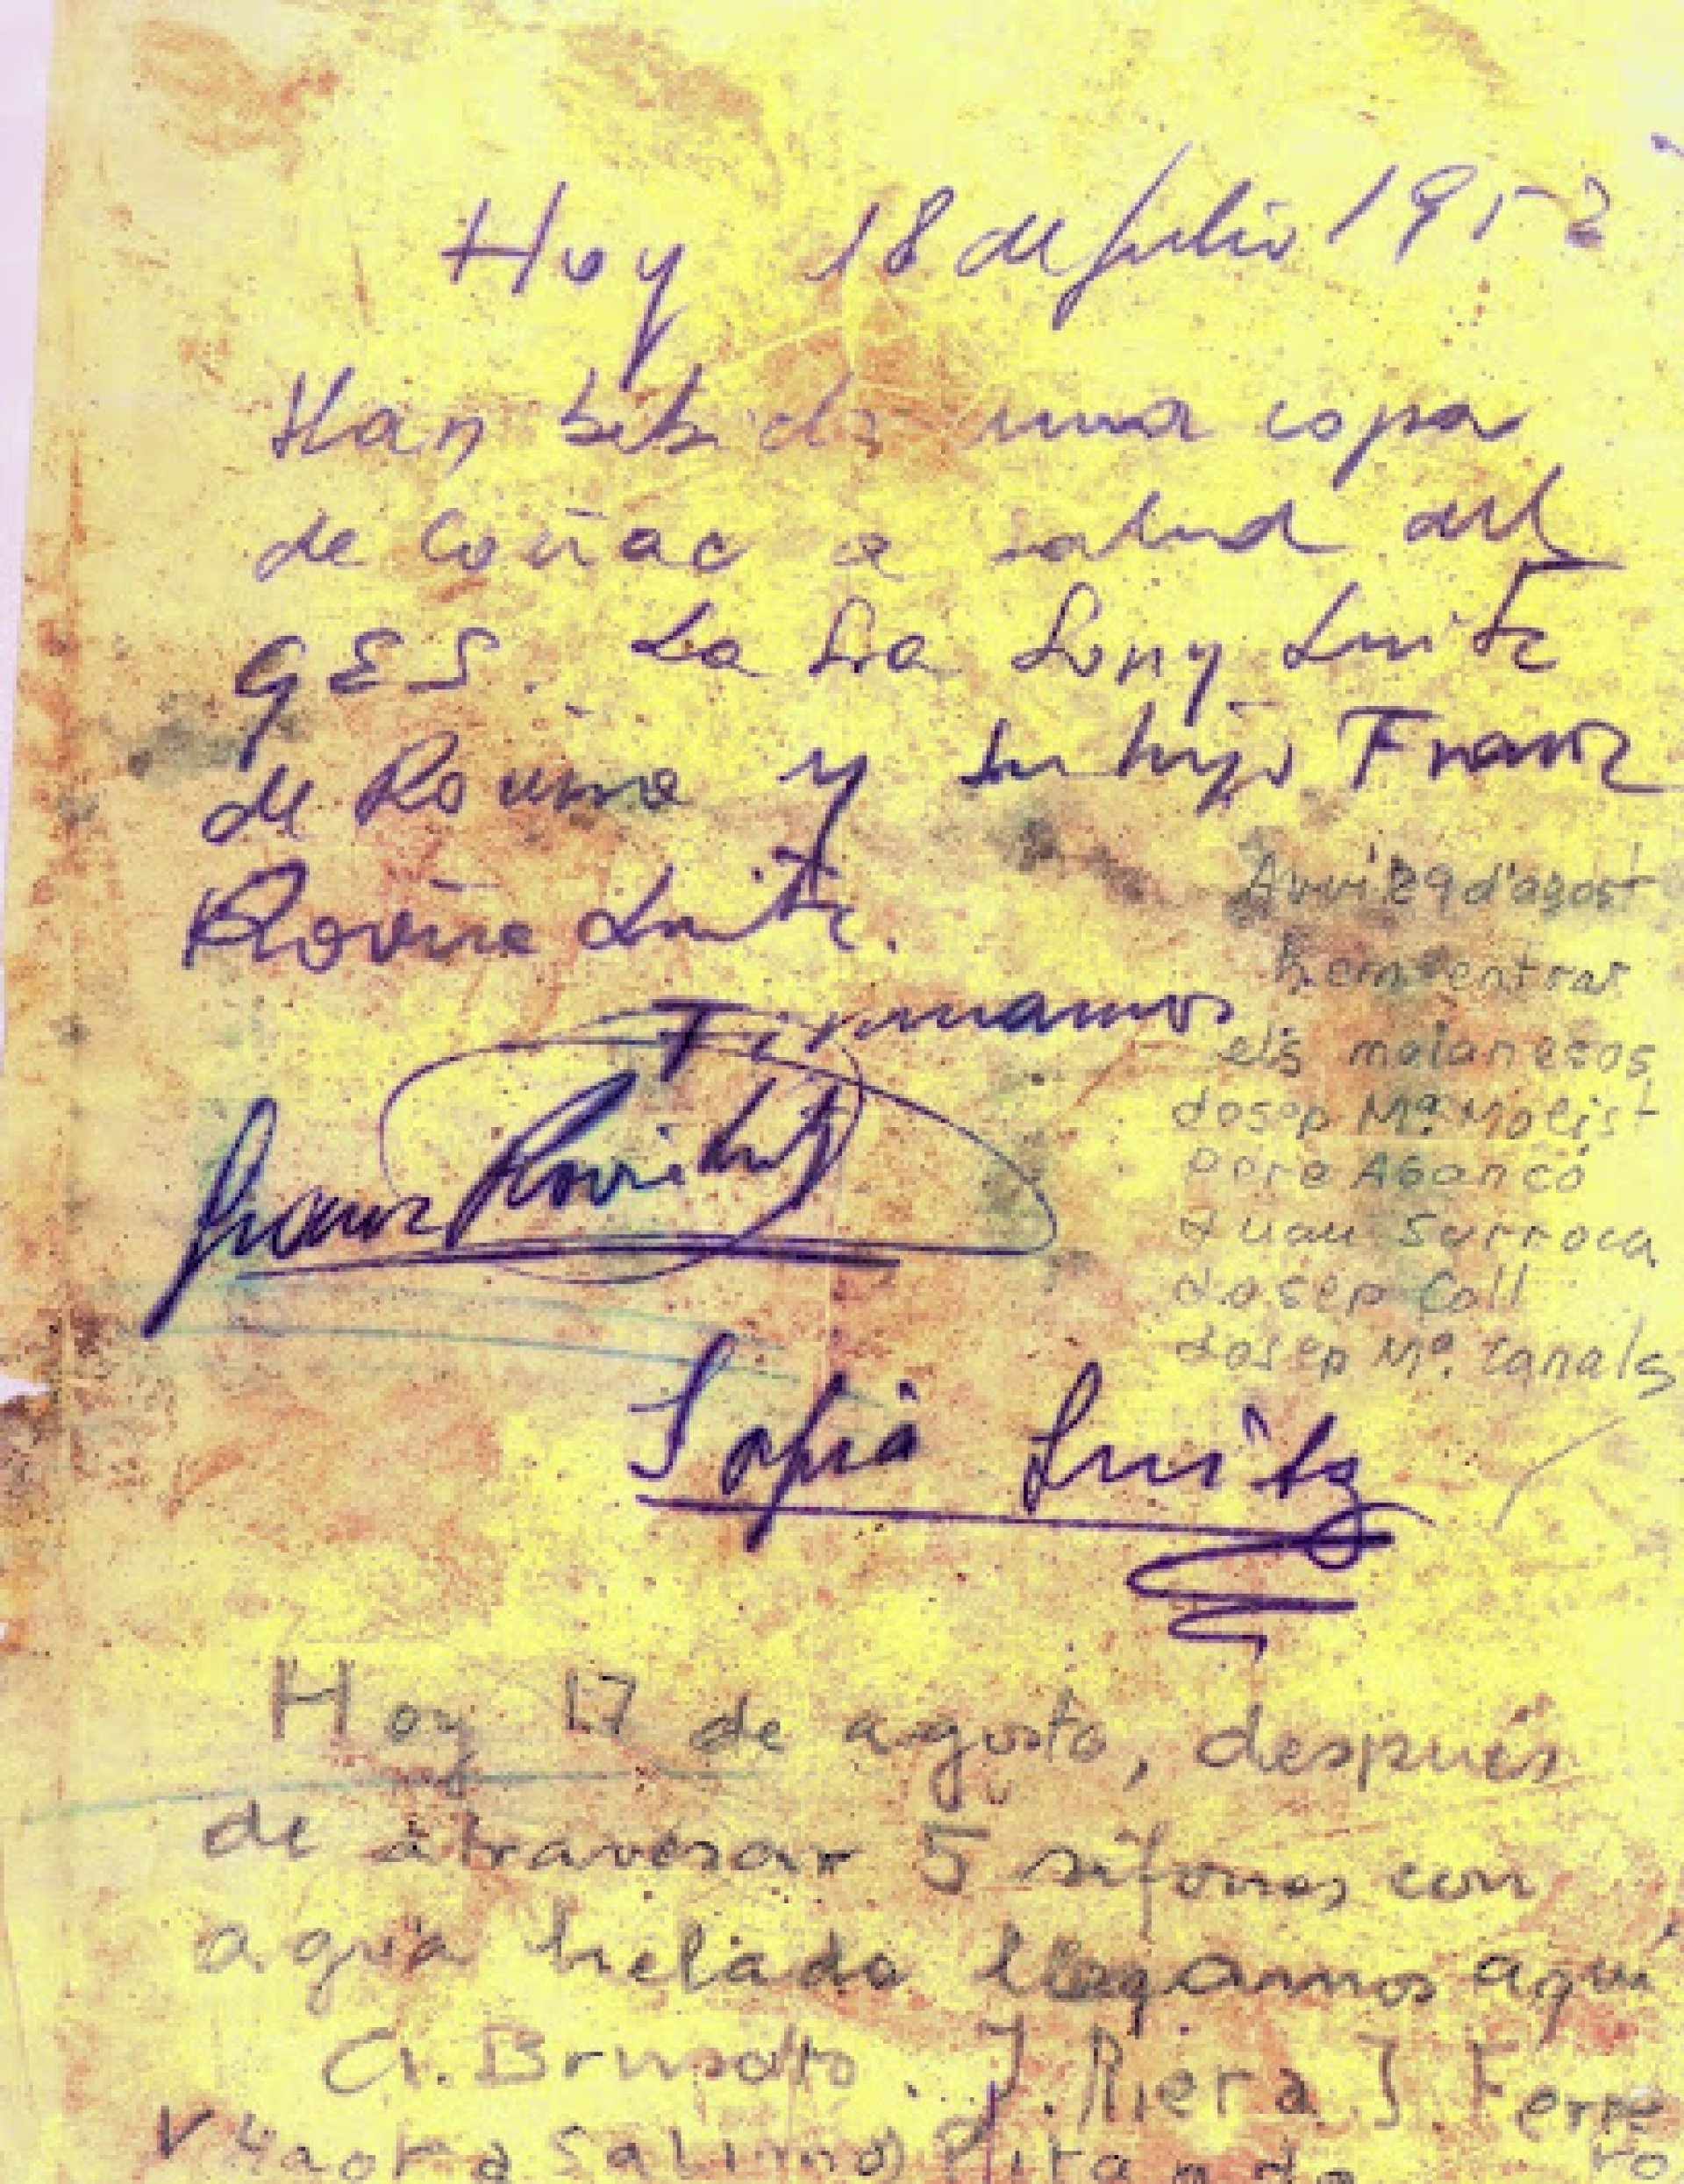 Hoy 18 de julio 1952
Han bebido una copa
de Coñac a salud del
GES. La Sra Sony Luitz
de Rovira y su hijo Franz
Rovira Luitz.
Firmamos
Franz Rovira Luitz
Sofia Luitz
Avui 29 d'agost
hem entrar
els
Josep Mª. Molist
Pere
Juan Surroca
Josep Coll
Josep Mª. Canals
Hoy 17 de agosto, después
de atravesar 5 sifones con
agua helada llegamos aquí
J. Riera J. Ferre
ro